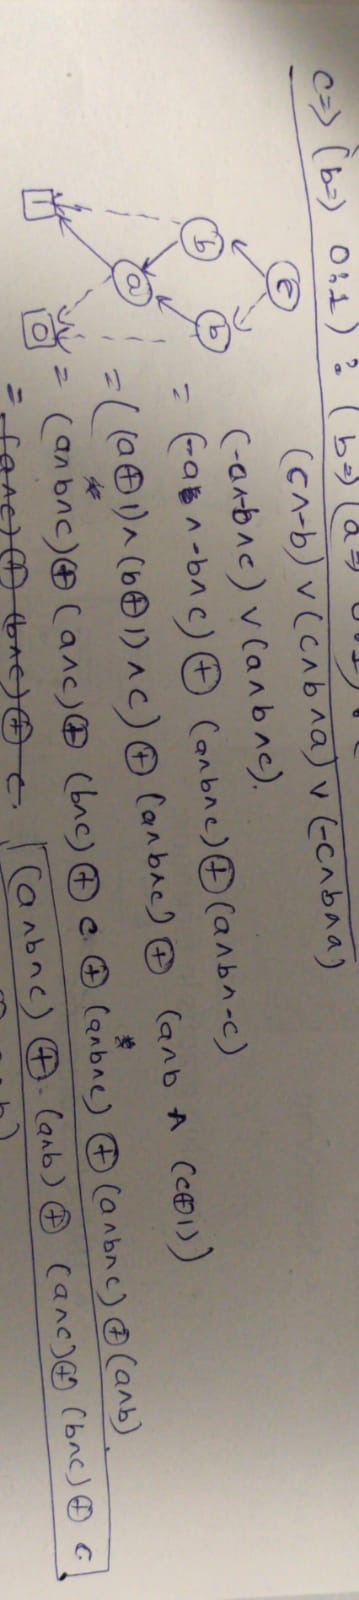 c=> (b=) 0:1) : (b=) (a=)
(c∧¬b) ∨ (c∧b∧a) ∨ (¬c∧b∧a)
c
b b
a
1 0
(¬a∧¬b∧c) ∨ (a∧b∧c).
= (¬a∧¬b∧c) ⊕ (a∧b∧c) ⊕ (a∧b∧¬c)
= ((a⊕1)∧(b⊕1)∧c) ⊕ (a∧b∧c) ⊕ (a∧b ∧ (c⊕1))
= (a∧b∧c) ⊕ (a∧c) ⊕ (b∧c) ⊕ c ⊕ (a∧b∧c) ⊕ (a∧b∧c) ⊕ (a∧b).
= (a∧c) ⊕ (b∧c) ⊕ c. (a∧b∧c) ⊕ (a∧b) ⊕ (a∧c) ⊕ (b∧c) ⊕ c